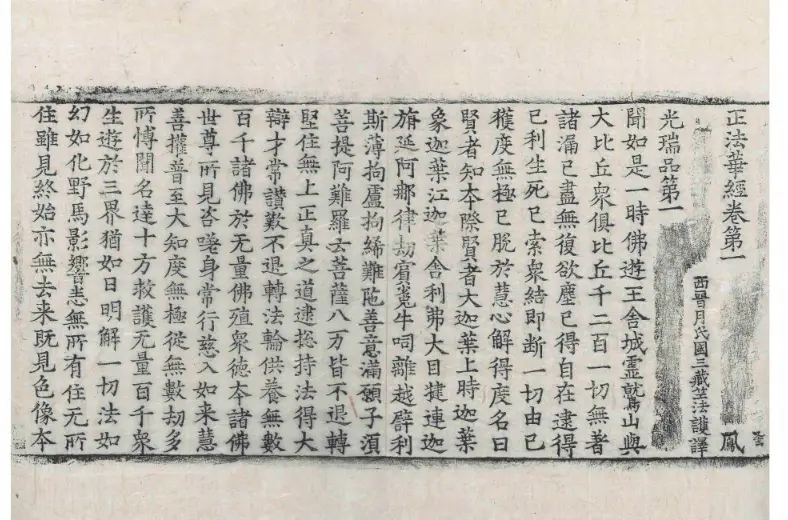 正法華經卷第一
鳳
西晉月氏國三藏竺法護譯
光瑞品第一
聞如是一時佛遊王舍城靈鷲山與
大比丘衆俱比丘千二百一切無著
諸漏已盡無復欲塵已得自在逮得
已利生死已索衆結即斷一切由已
獲度無極已脫於慧心解得度名曰
賢者知本際賢者大迦葉上時迦葉
象迦葉江迦葉舍利弗大目揵連迦
旃延阿那律劫賓㝹牛呞離越譬利
斯薄拘盧拘絺難陁善意滿願子須
菩提阿難羅云菩薩八万皆不退轉
堅住無上正真之道逮揔持法得大
辯才常讚歎不退轉法輪供養無數
百千諸佛於无量佛殖衆徳本諸佛
世尊所見咨嗟身常行慈入如来慧
善權普至大知度無極從無數劫多
所博聞名達十方救護无量百千衆
生遊於三界猶如日明解一切法如
幻如化野馬影響悉無所有住无所
住雖見終始亦無去来既見色像本